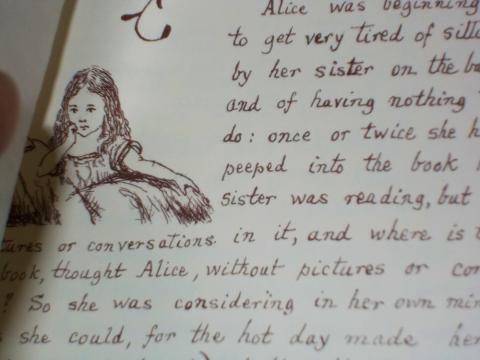 Alice was beginning
to get very tired of
by her sister on the
and of having nothing
do: once or twice she
peeped into the book
sister was reading, but
or conversations in it, and where is
book, thought Alice, without pictures or
? So she was considering in her own
she could, for the hot day made